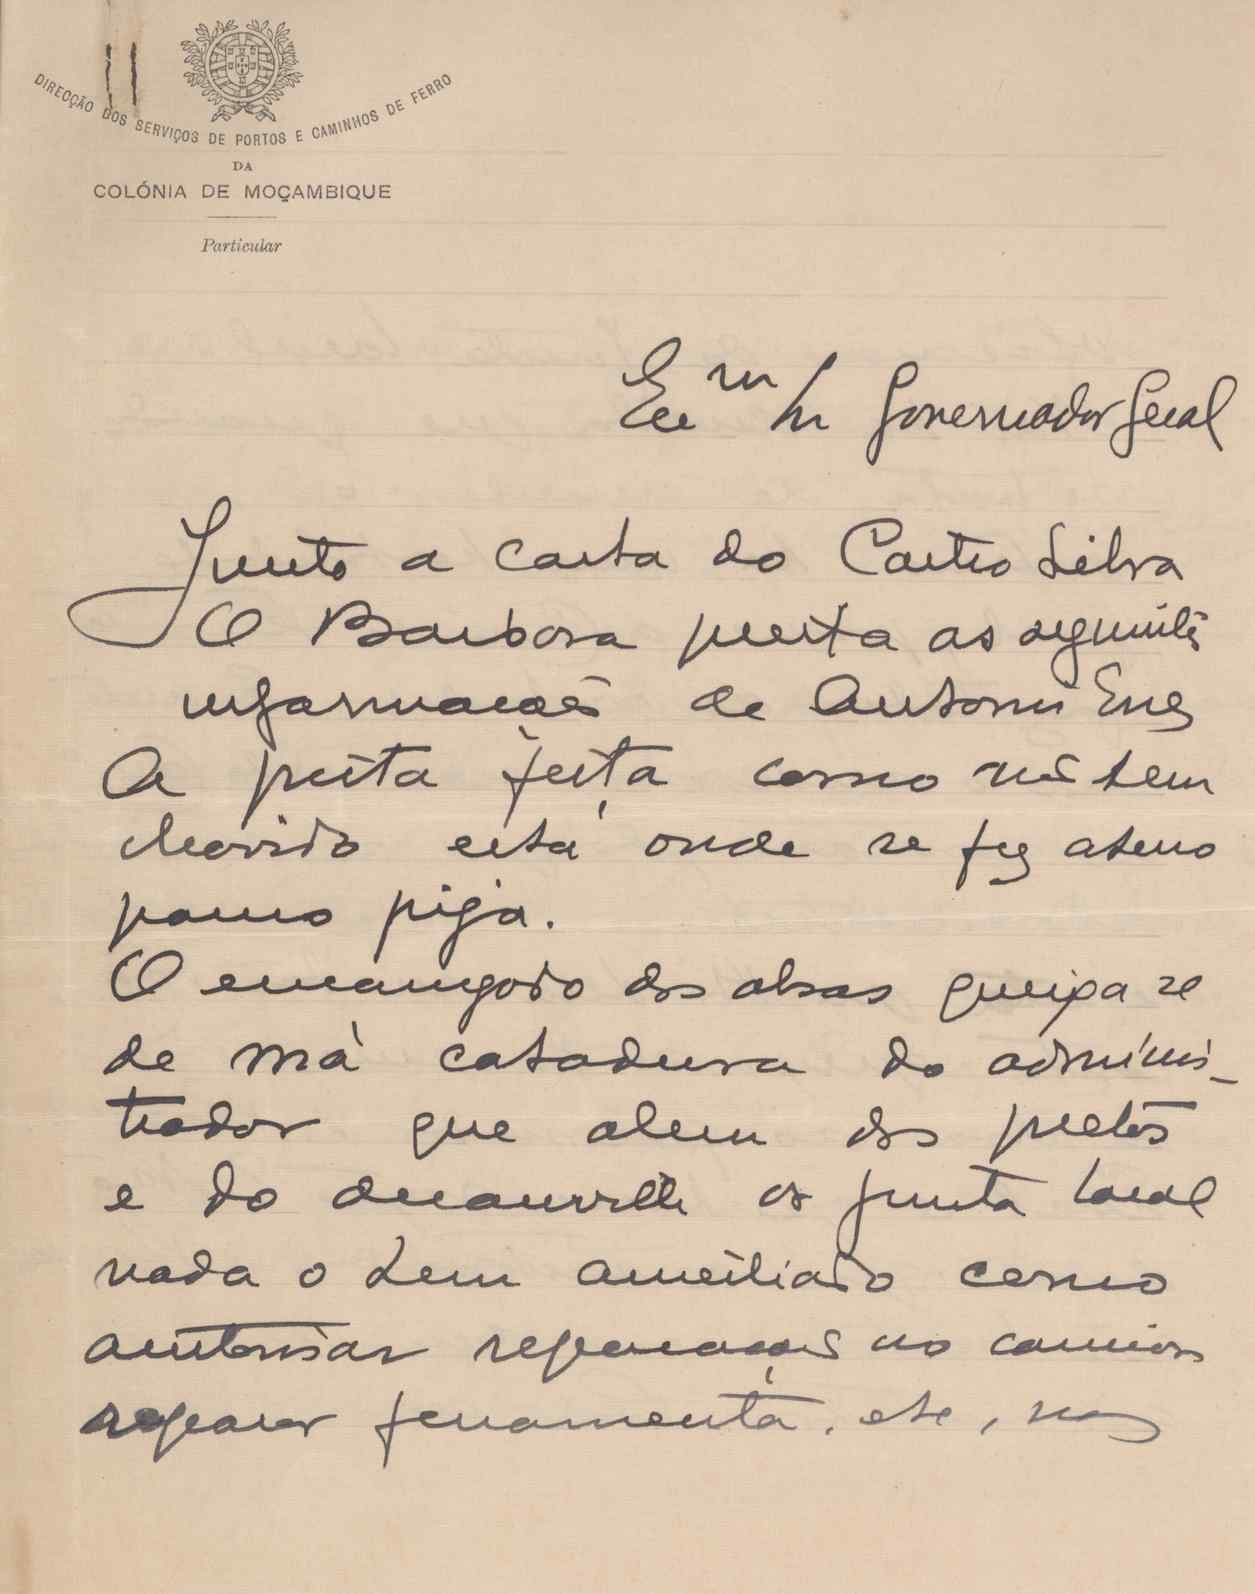 DIRECÇÃO DOS SERVIÇOS DE PORTOS E CAMINHOS DE FERRO
DA
COLÓNIA DE MOÇAMBIQUE
Particular
Exmo Sr Governador Geral
Junto a carta do Castro Silva
O Barbosa presta as seguintes
informações de Antonio Enes
A pista feita como não tem
chovido está onde se fez aterro
pouco rija.
O encarregado das obras queixa se
de má catadura do adminis-
trador que alem dos pretos
e do decauville da junta local
nada o tem auxiliado como
autorisar reparações no camion
reparar ferramenta, etc, nas